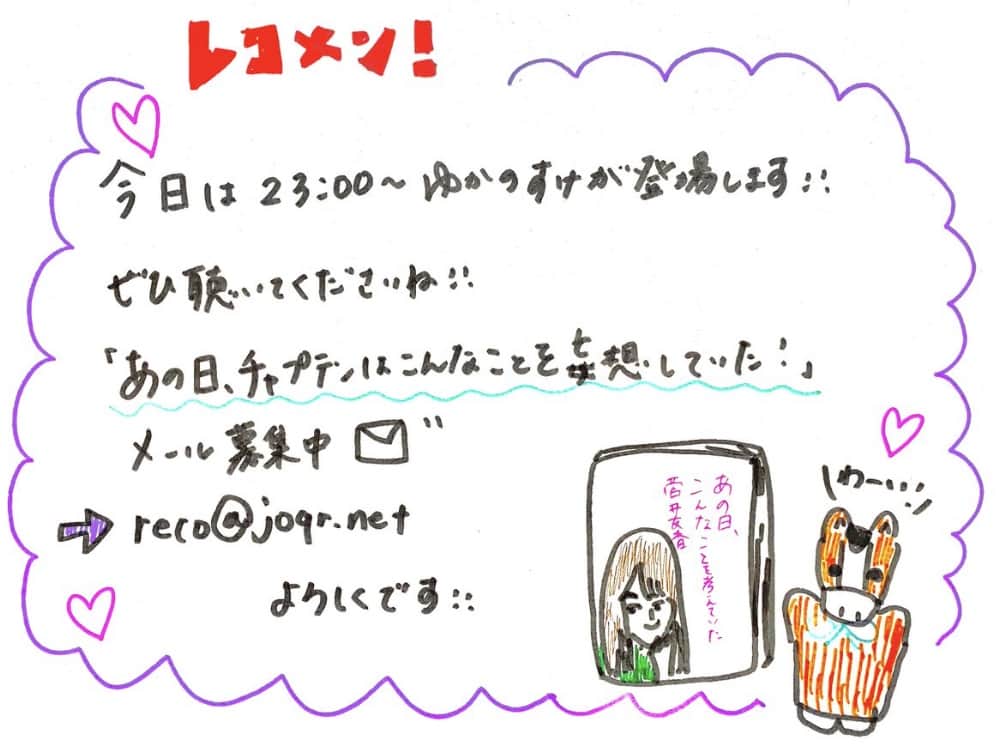 レコメン!
今日は 23:00〜 ゆかのすけが登場します!!
ぜひ聴いてくださいね!!
「あの日、チャプテンはこんなことを妄想していた!」
メール募集中
reco@joqr.net
よろしくです!!
あの日、
こんなことを考えていた
菅井友香
わーい